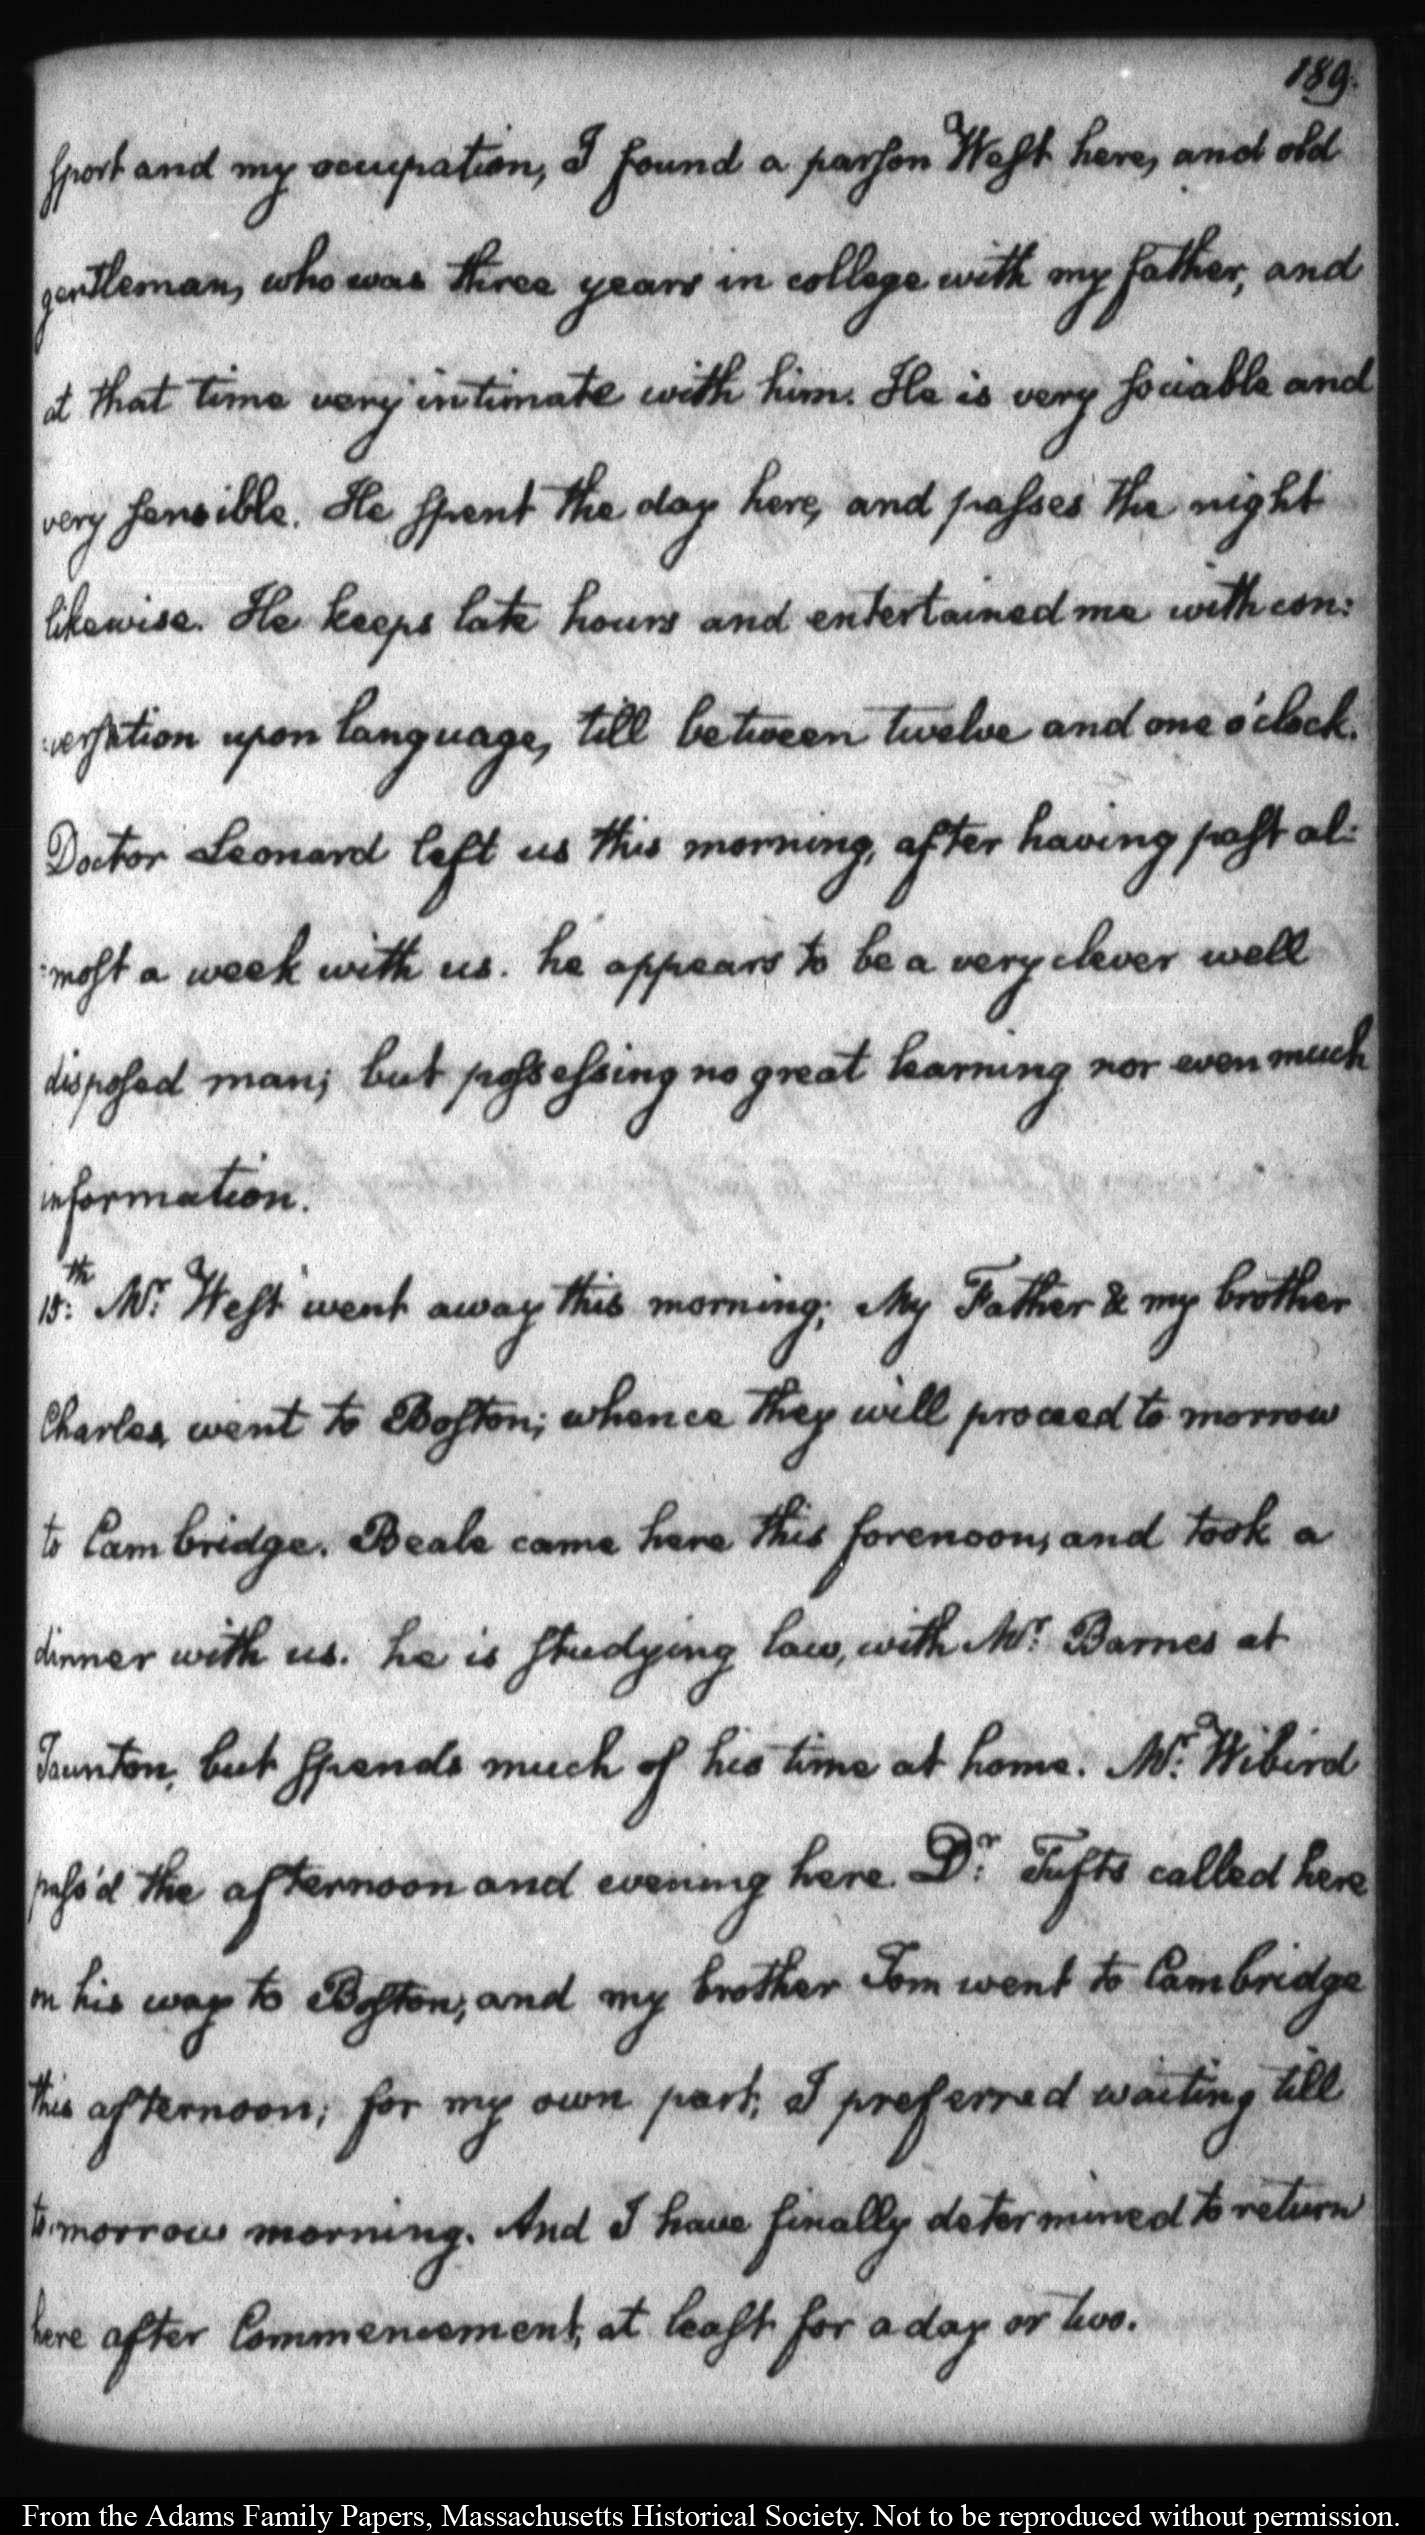 189.
sport and my occupation, I found a parson West here, and old
gentleman, who was three years in college with my father, and
at that time very intimate with him. He is very sociable and
very sensible. He spent the day here, and passes the night
likewise. He keeps late hours and entertained me with con:
:versation upon language, till between twelve and one o'clock.
Doctor Leonard left us this morning, after having past al:
:most a week with us. he appears to be a very clever well
disposed man; but possessing no great learning nor even much
information.
15:th Mr. West went away this morning; My Father & my brother
Charles went to Boston; whence they will proceed to morrow
to Cambridge. Beale came here this forenoon, and took a
dinner with us. he is studying law, with Mr. Barnes at
Taunton, but spends much of his time at home. Mr. Wibird
pass'd the afternoon and evening here. Dr. Tufts called here
on his way to Boston; and my brother Tom went to Cambridge
this afternoon; for my own part, I preferred waiting till
to-morrow morning. And I have finally determined to return
here after Commencement, at least for a day or two.
From the Adams Family Papers, Massachusetts Historical Society. Not to be reproduced without permission.